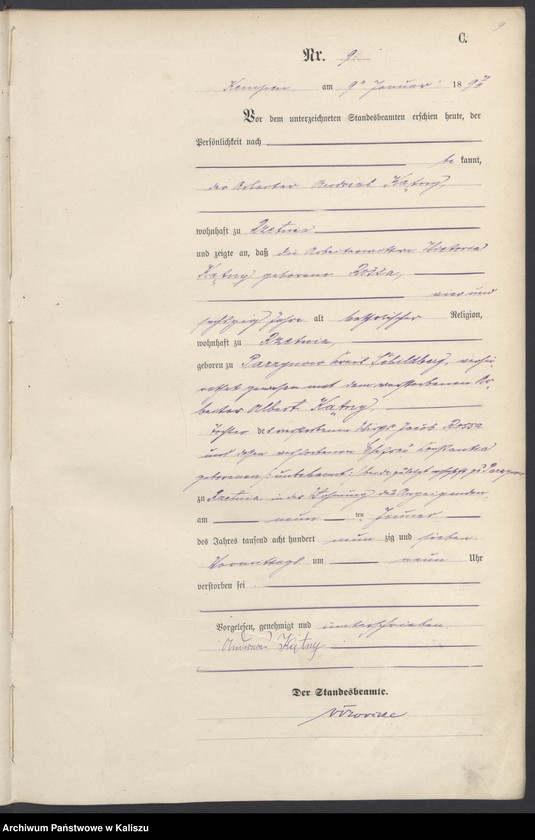 9
C.
Nr. 9.
Kempen am 9ten Januar 1897
Vor dem unterzeichneten Standesbeamten erschien heute, der
Persönlichkeit nach
be kannt,
der Arbeiter Andreas Kątny,
wohnhaft zu Rzetnia
und zeigte an, daß die Arbeiterwittwe Victoria
Kątny geborene Rossa,
vier und
sechszig Jahre alt katholischer Religion,
wohnhaft zu Rzetnia,
geboren zu Parzynow Kreis Schildberg, verhei-
rathet gewesen mit dem verstorbenen Ar-
beiter Albert Kątny,
Tochter des verstorbenen Wirths Jacob Rossa
und dessen verstorbenen Ehefrau Constantia
geborenen, unbekannt, beide zuletzt wohnhaft zu Parzynow,
zu Rzetnia in der Wohnung des Anzeigenden,
am neun ten Januar
des Jahres tausend acht hundert neun zig und sieben
Vormittags um neun Uhr
verstorben sei
Vorgelesen, genehmigt und unterschrieben
Andreas Kątny
Der Standesbeamte.
Archiwum Państwowe w Kaliszu